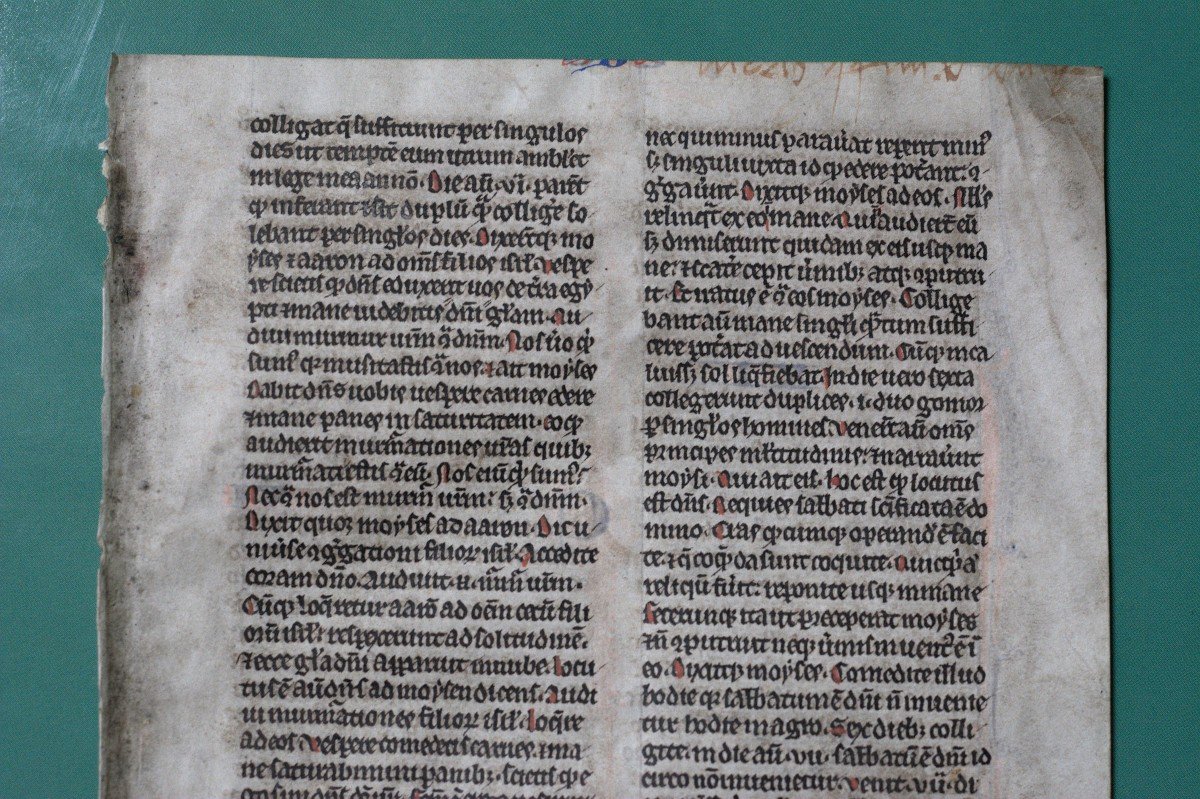 colligat q̄ sufficiunt per singulos
dies ut temptē eum utrum ambl̓et
in lege mea an nō. Die aū. vi. parēt
qd̓ inferant ⁊ sit duplū q̄ collig̓e so
lebant per singl̓os dies. Dixer̄tqꝫ mo
yses ⁊ aaron ad om̄s filios isrl̓. vespe
re scietis qd̓ dn̄s eduxerit uos de t̓ra egy
pti ⁊ mane uidebitis dn̄i gl̓am. Au
diui murmur ur̄m ꝯ̓ dn̄m. Nos u̓o qd̓
sum̓ qꝫ musitastis ꝯ̓ nos. ⁊ ait moyses
Dabit dn̄s uobis uespere carnes edere
⁊ mane panes in saturitatem. eo qd̓
audierit murm̓ationes ur̄as quibꝫ
murm̓ati estis ꝯ̓ eū. Nos enī qd̓ sum̓.
Nec ꝯ̓ nos est murm̓ ur̄m. sꝫ ꝯ̓ dn̄m.
Dixit quoꝫ moyses ad aaron. Dic u
niu̓se ꝯg̓gationi filioꝝ isrl̓. Accedite
coram dn̄o. Audiuit. n̄. murm̓ ur̄m.
Cūqꝫ loq̄retur aarō ad om̄em cetū fili
orū isrl̓. respexerunt ad solitudinē.
⁊ ecce gl̓a dn̄i apparuit in nube. Locu
tus ē aū dn̄s ad moysen dicens. Audi
ui murm̓ationes filioꝝ isrl̓. loq̓re
ad eos. Vespere comedetis carnes. ⁊ ma
ne saturabimini panibꝫ. scietis qꝫ e
nec qui minus parau̓at reperit min̓
sꝫ singuli iuxta id qd̓ edere pot̓ant. ꝯ
g̓gau̓unt. Dixitqꝫ moyses ad eos. Null̓s
relinq̄t ex eo ī mane. Qui n̄ audier̄t eū
sꝫ dimiserunt quidam ex eis usqꝫ ma
ne. ⁊ scat̓e cepit u̓mibꝫ atqꝫ ꝯputru
it. Et iratus ē ꝯ̓ eos moyses. Collige
bant aū mane singl̓i qꝫtum suffi
cere pot̓at ad uescendum. Cūqꝫ inca
luissꝫ sol liq̄fiebat. In die uero sexta
collegerunt duplices. i. duo gomor
ꝑ singl̓os homines. Venerūt aū om̄s
principes ml̓titudinis. ⁊ narrau̓unt
moysi. Qui ait eis. hoc est qd̓ locutus
est dn̄s. Requies sabbati sc̄ificata ē do
mino. Cras qd̓cumqꝫ operand̓ ē faci
te. ⁊ q̄ coq̄nda sunt coquite. Quicqd̓ a̓
reliqū fu̓it. reponite usqꝫ in mane
Feceruntqꝫ ita ut preceperat moyses
⁊ n̄ ꝯputruit neqꝫ u̓mis inuent̓ ē ī
eo. Dixitqꝫ moyses. Comedite illud
hodie qꝫ sabbatum ē dn̄i n̄ inuenie
tur hodie in agro. Sex diebꝫ colli
gite. in die aū. vii. sabbatū ē dn̄i id
circo nō inuenietur. Venit. vii. di